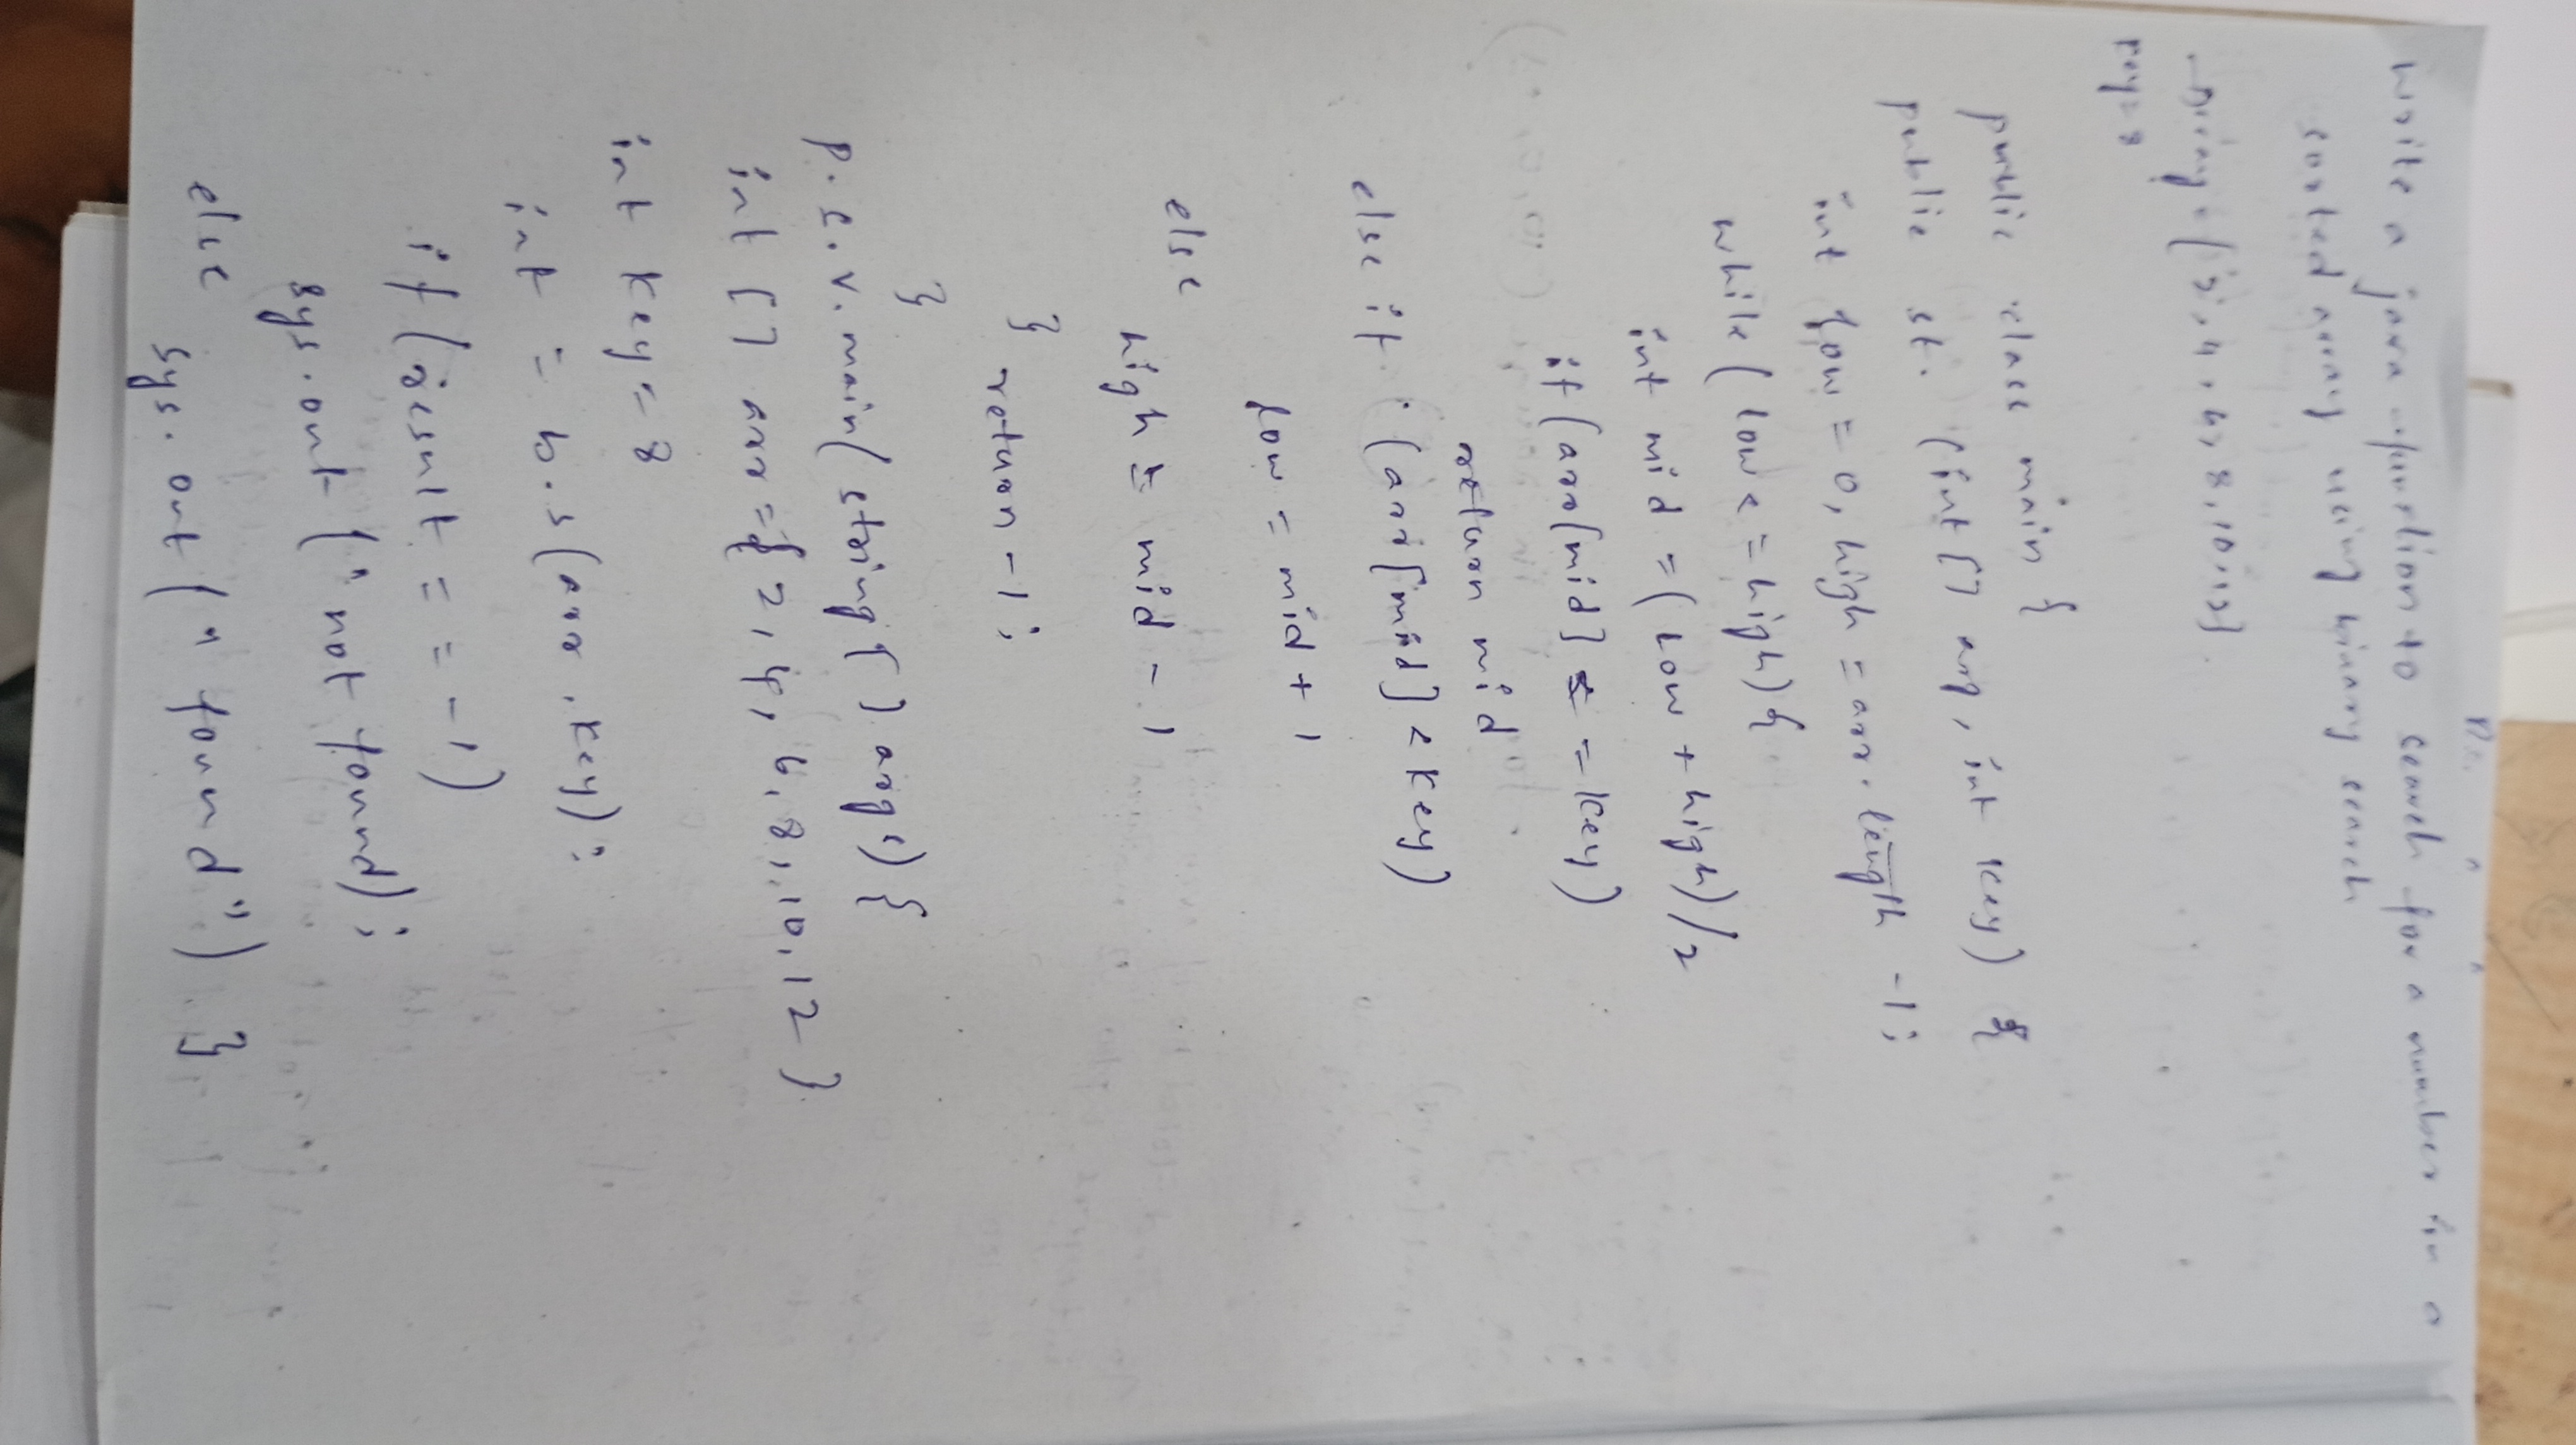 write a java function to search for a number in a
sorted array using binary search
Array = {2, 4, 6, 8, 10, 12}
key = 8
public class main {
public st. (int [] arg, int key) {
int low = 0, high = arr. length -1;
while (low <= high) {
int mid = (low + high)/2
if (arr[mid] == key)
return mid
else if (arr[mid] < key)
low = mid + 1
else
high = mid - 1
} return -1;
}
p. s. v. main (string [] args) {
int [] arr = { 2, 4, 6, 8, 10, 12 }
int key = 8
int = b.s (arr, key);
if (result == -1)
sys. out (" not found);
else sys. out (" found") }